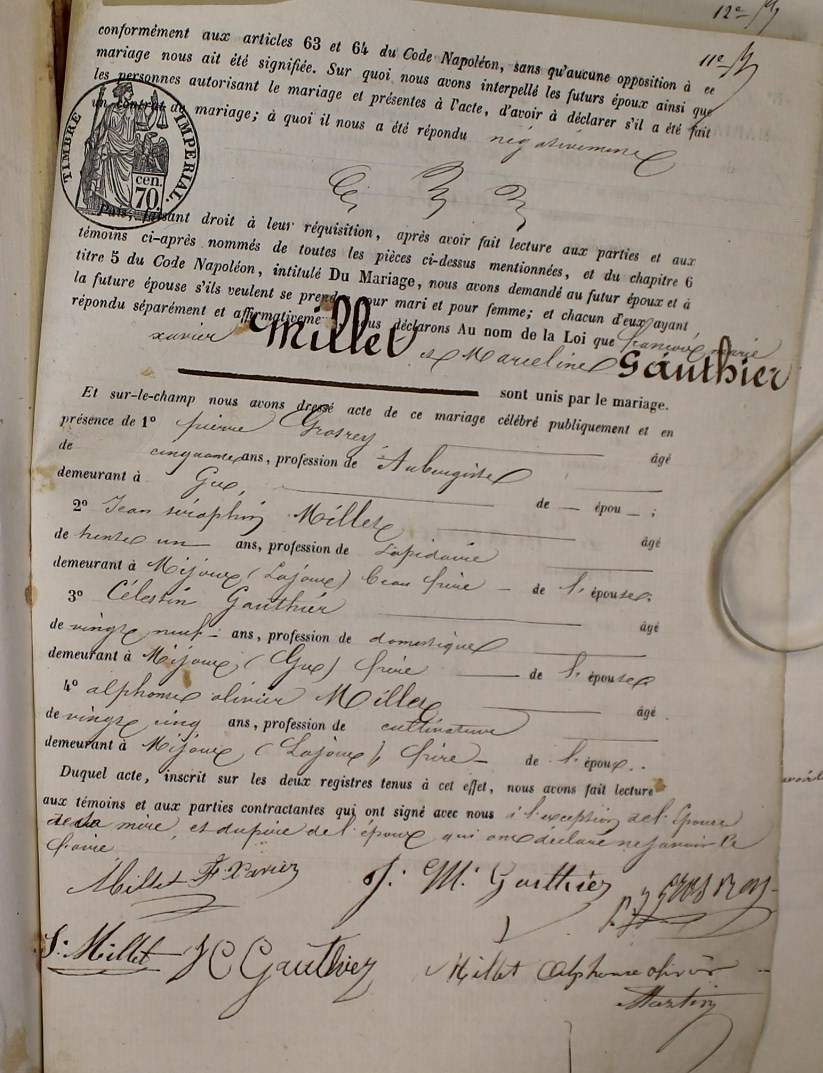 12e
11e
conformément aux articles 63 et 64 du Code Napoléon, sans qu'aucune opposition à ce
mariage nous ait été signifiée. Sur quoi nous avons interpellé les futurs époux ainsi que
les personnes autorisant le mariage et présentes à l'acte, d'avoir à déclarer s'il a été fait
un contrat de mariage; à quoi il nous a été répondu négativement
TIMBRE IMPERIAL.
cen.
70.
Puis, faisant droit à leur réquisition, après avoir fait lecture aux parties et aux
témoins ci-après nommés de toutes les pièces ci-dessus mentionnées, et du chapitre 6
titre 5 du Code Napoléon, intitulé Du Mariage, nous avons demandé au futur époux et à
la future épouse s'ils veulent se prendre pour mari et pour femme; et chacun d'eux ayant
répondu séparément et affirmativeme nous déclarons Au nom de la Loi que françois marie
xavier Millet et Marceline Gauthier
sont unis par le mariage.
Et sur-le-champ nous avons dressé acte de ce mariage célébré publiquement et en
présence de 1° pierre Grosrey âgé
de cinquante ans, profession de Aubergiste
demeurant à Gex, de — épou — ;
2° Jean séraphin Millet âgé
de trente un ans, profession de Lapidaire
demeurant à Mijoux (Lajoux) beau frère — de l'épouse;
3° Célestin Gauthier âgé
de vingt neuf ans, profession de domestique
demeurant à Mijoux (Gex) frère — de l'épouse
4° alphonse olivier Millet âgé
de vingt cinq ans, profession de cultivateur
demeurant à Mijoux (Lajoux) frère — de l'époux.
Duquel acte, inscrit sur les deux registres tenus à cet effet, nous avons fait lecture
aux témoins et aux parties contractantes qui ont signé avec nous à l'exception de l'épouse
de sa mère, et du père de l'époux qui ont déclaré ne savoir le
faire
Millet F. Xavier J. M. Gauthier GROSREY
S. Millet J C Gauthier Millet alphonse olivier
Martin